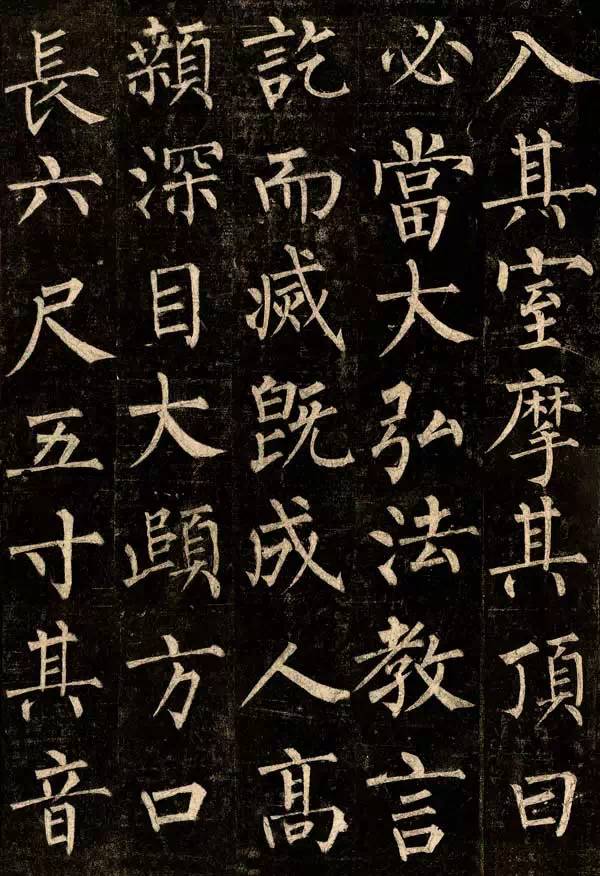 入其室摩其頂曰
必當大弘法教言
訖而滅既成人髙
顙深目大頤方口
長六尺五寸其音